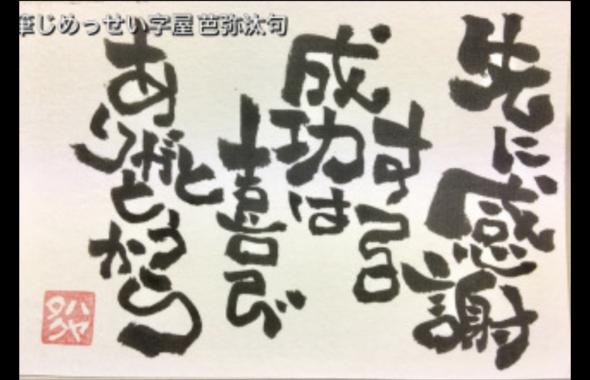 筆じめっせい字屋 芭弥汰句
先に感謝
する
成功は
喜びと
ありがとうから
ハヤ
タク